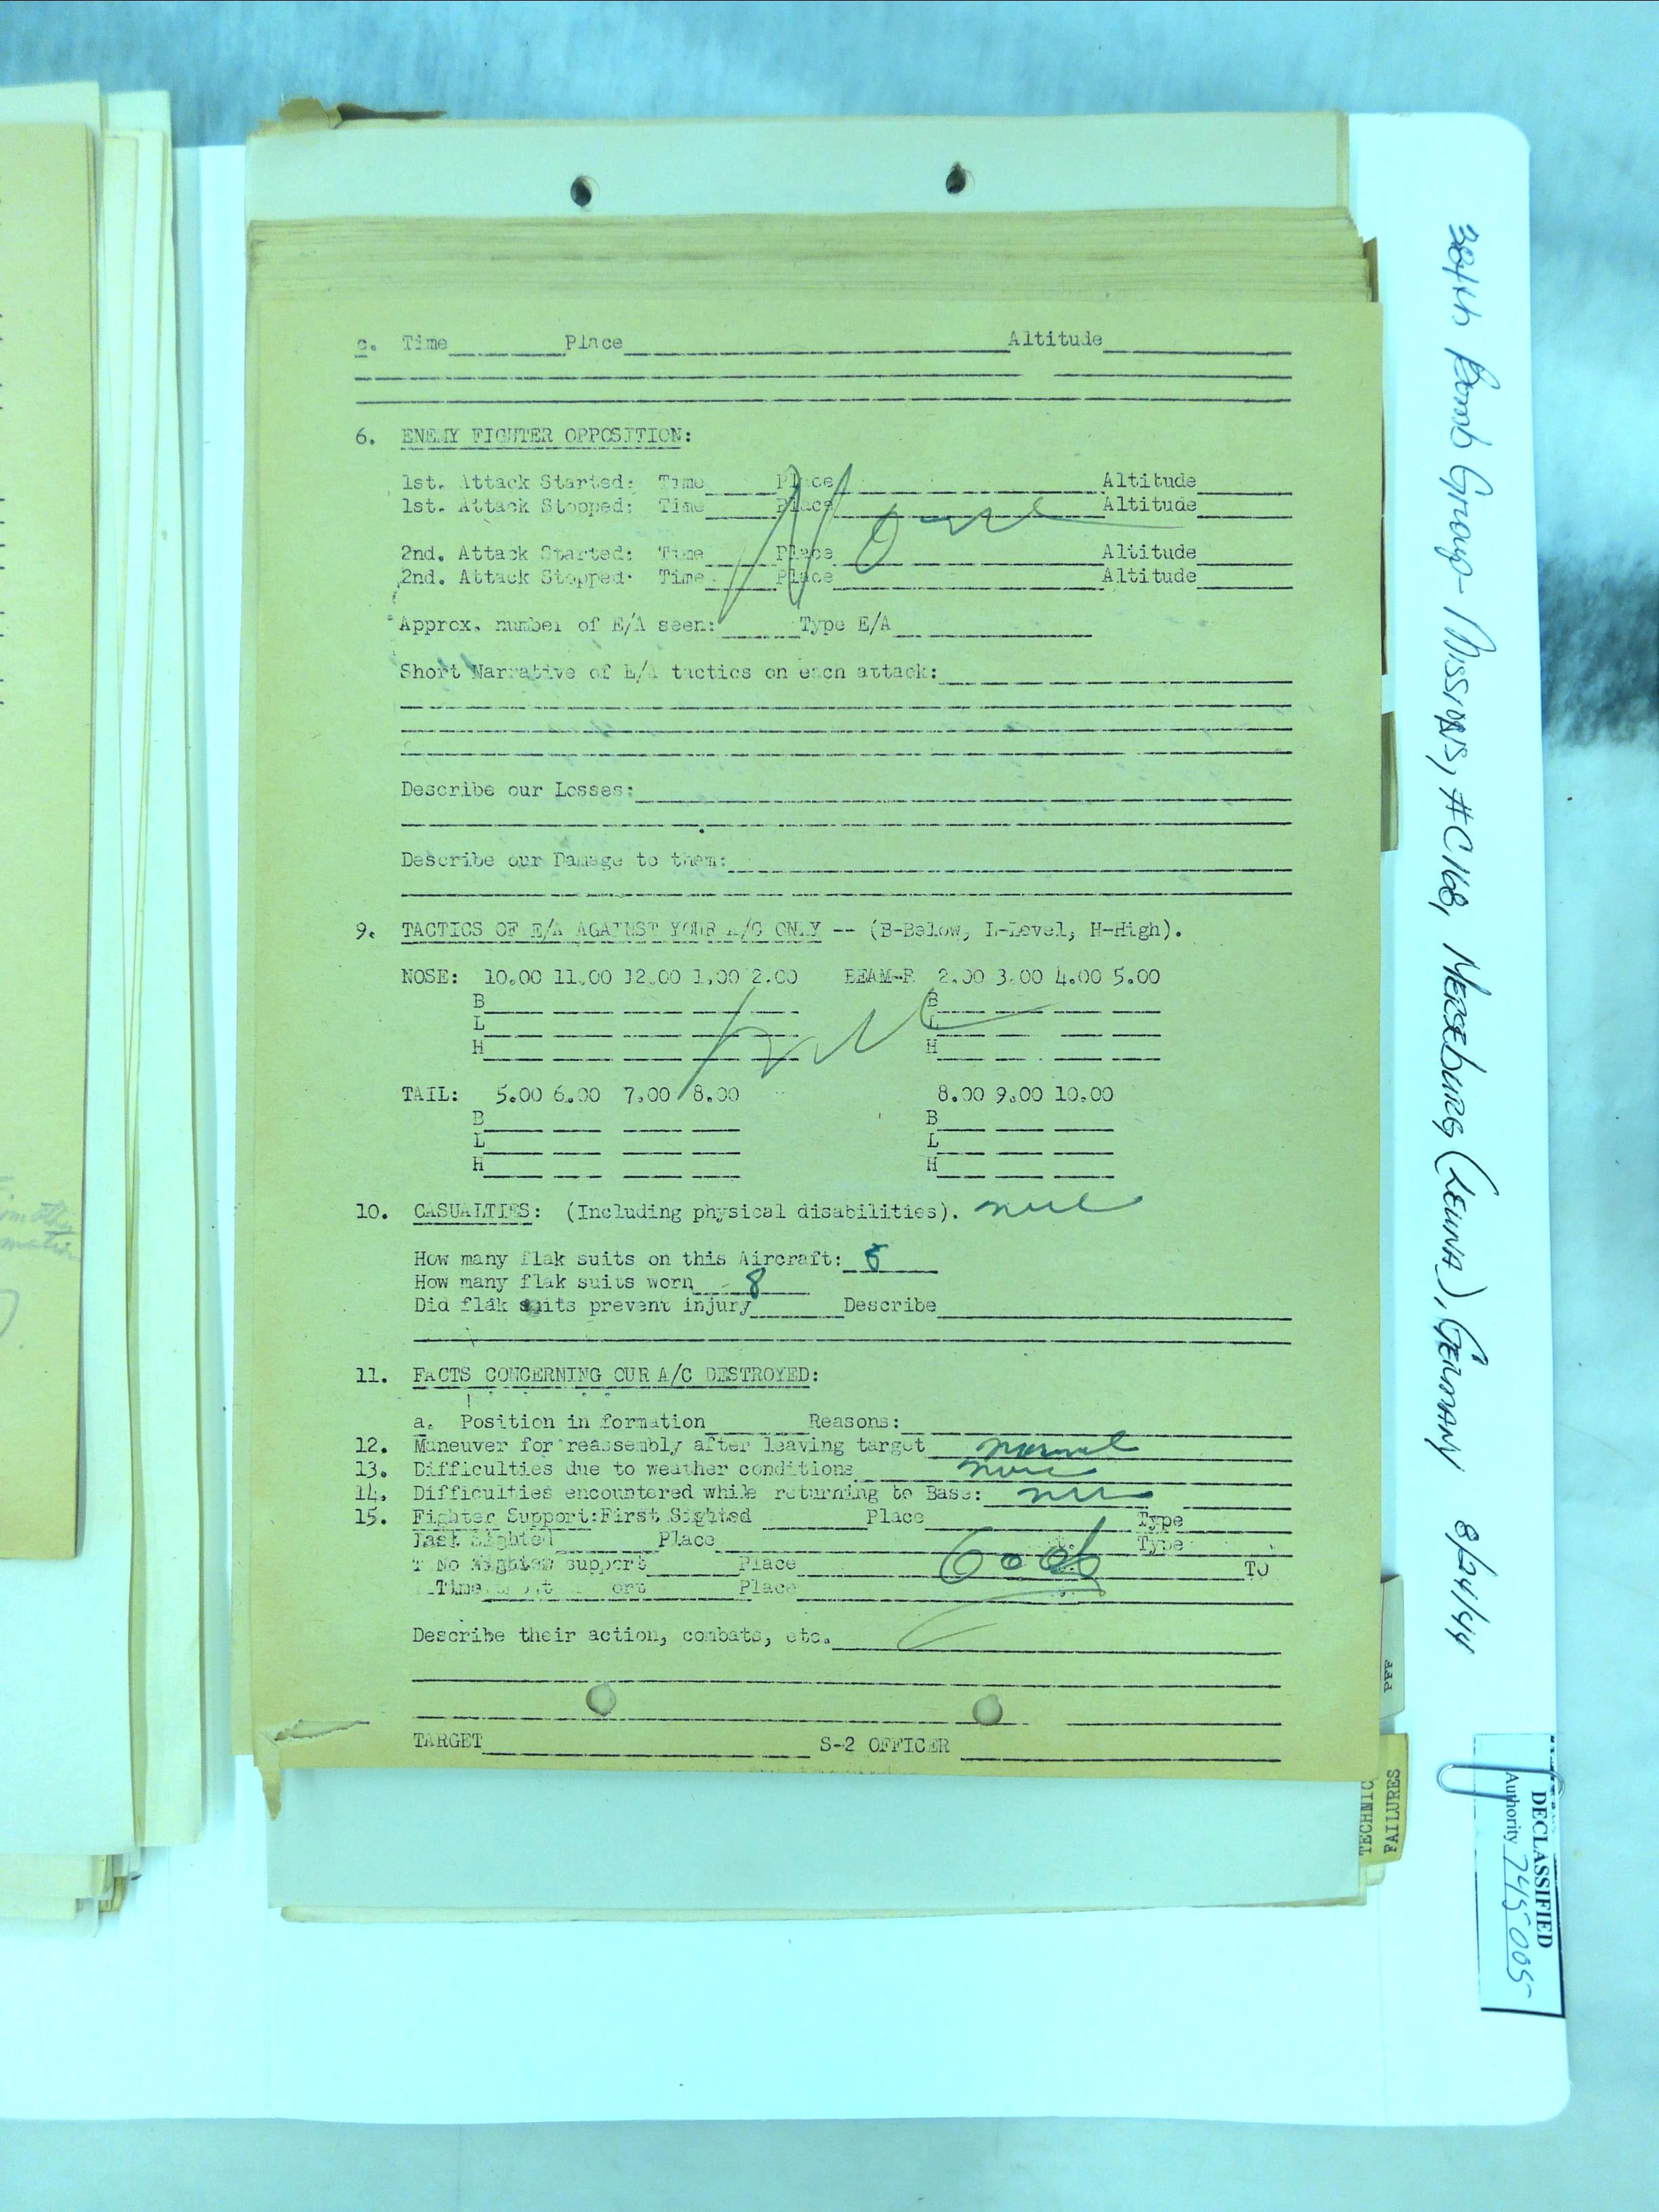 c. Time Place Altitude
6. ENEMY FIGHTER OPPOSITION:
1st. Attack Started: Time Place Altitude
1st. Attack Stopped: Time Place Altitude
None
2nd. Attack Started: Time Place Altitude
2nd. Attack Stopped: Time Place Altitude
Approx. number of E/A seen: Type E/A
Short Narrative of E/A tactics on each attack:
Describe our Losses:
Describe our Damage to them:
9. TACTICS OF E/A AGAINST YOUR A/C ONLY -- (B-Below, L-Level, H-High).
NOSE: 10.00 11.00 12.00 1.00 2.00 BEAM-R 2.00 3.00 4.00 5.00
B B
L L
H H
TAIL: 5.00 6.00 7.00 8.00 8.00 9.00 10.00
B B
L L
H H
10. CASUALTIES: (Including physical disabilities).
How many flak suits on this Aircraft:
How many flak suits worn 8
Did flak suits prevent injury Describe
11. FACTS CONCERNING OUR A/C DESTROYED:
a. Position in formation Reasons:
12. Maneuver for reassembly after leaving target normal
13. Difficulties due to weather conditions none
14. Difficulties encountered while returning to Base:
15. Fighter Support: First Sighted Place Type
Last Sighted Place Type
No Fighter support Place To
Time Place
Good
Describe their action, combats, etc.
TARGET S-2 OFFICER
384th Bomb Group - Missions, #C168, MERSEBURG (LEUNA), GERMANY 8/24/44
PFF
TECHNIC
FAILURES
DECLASSIFIED
Authority 745005